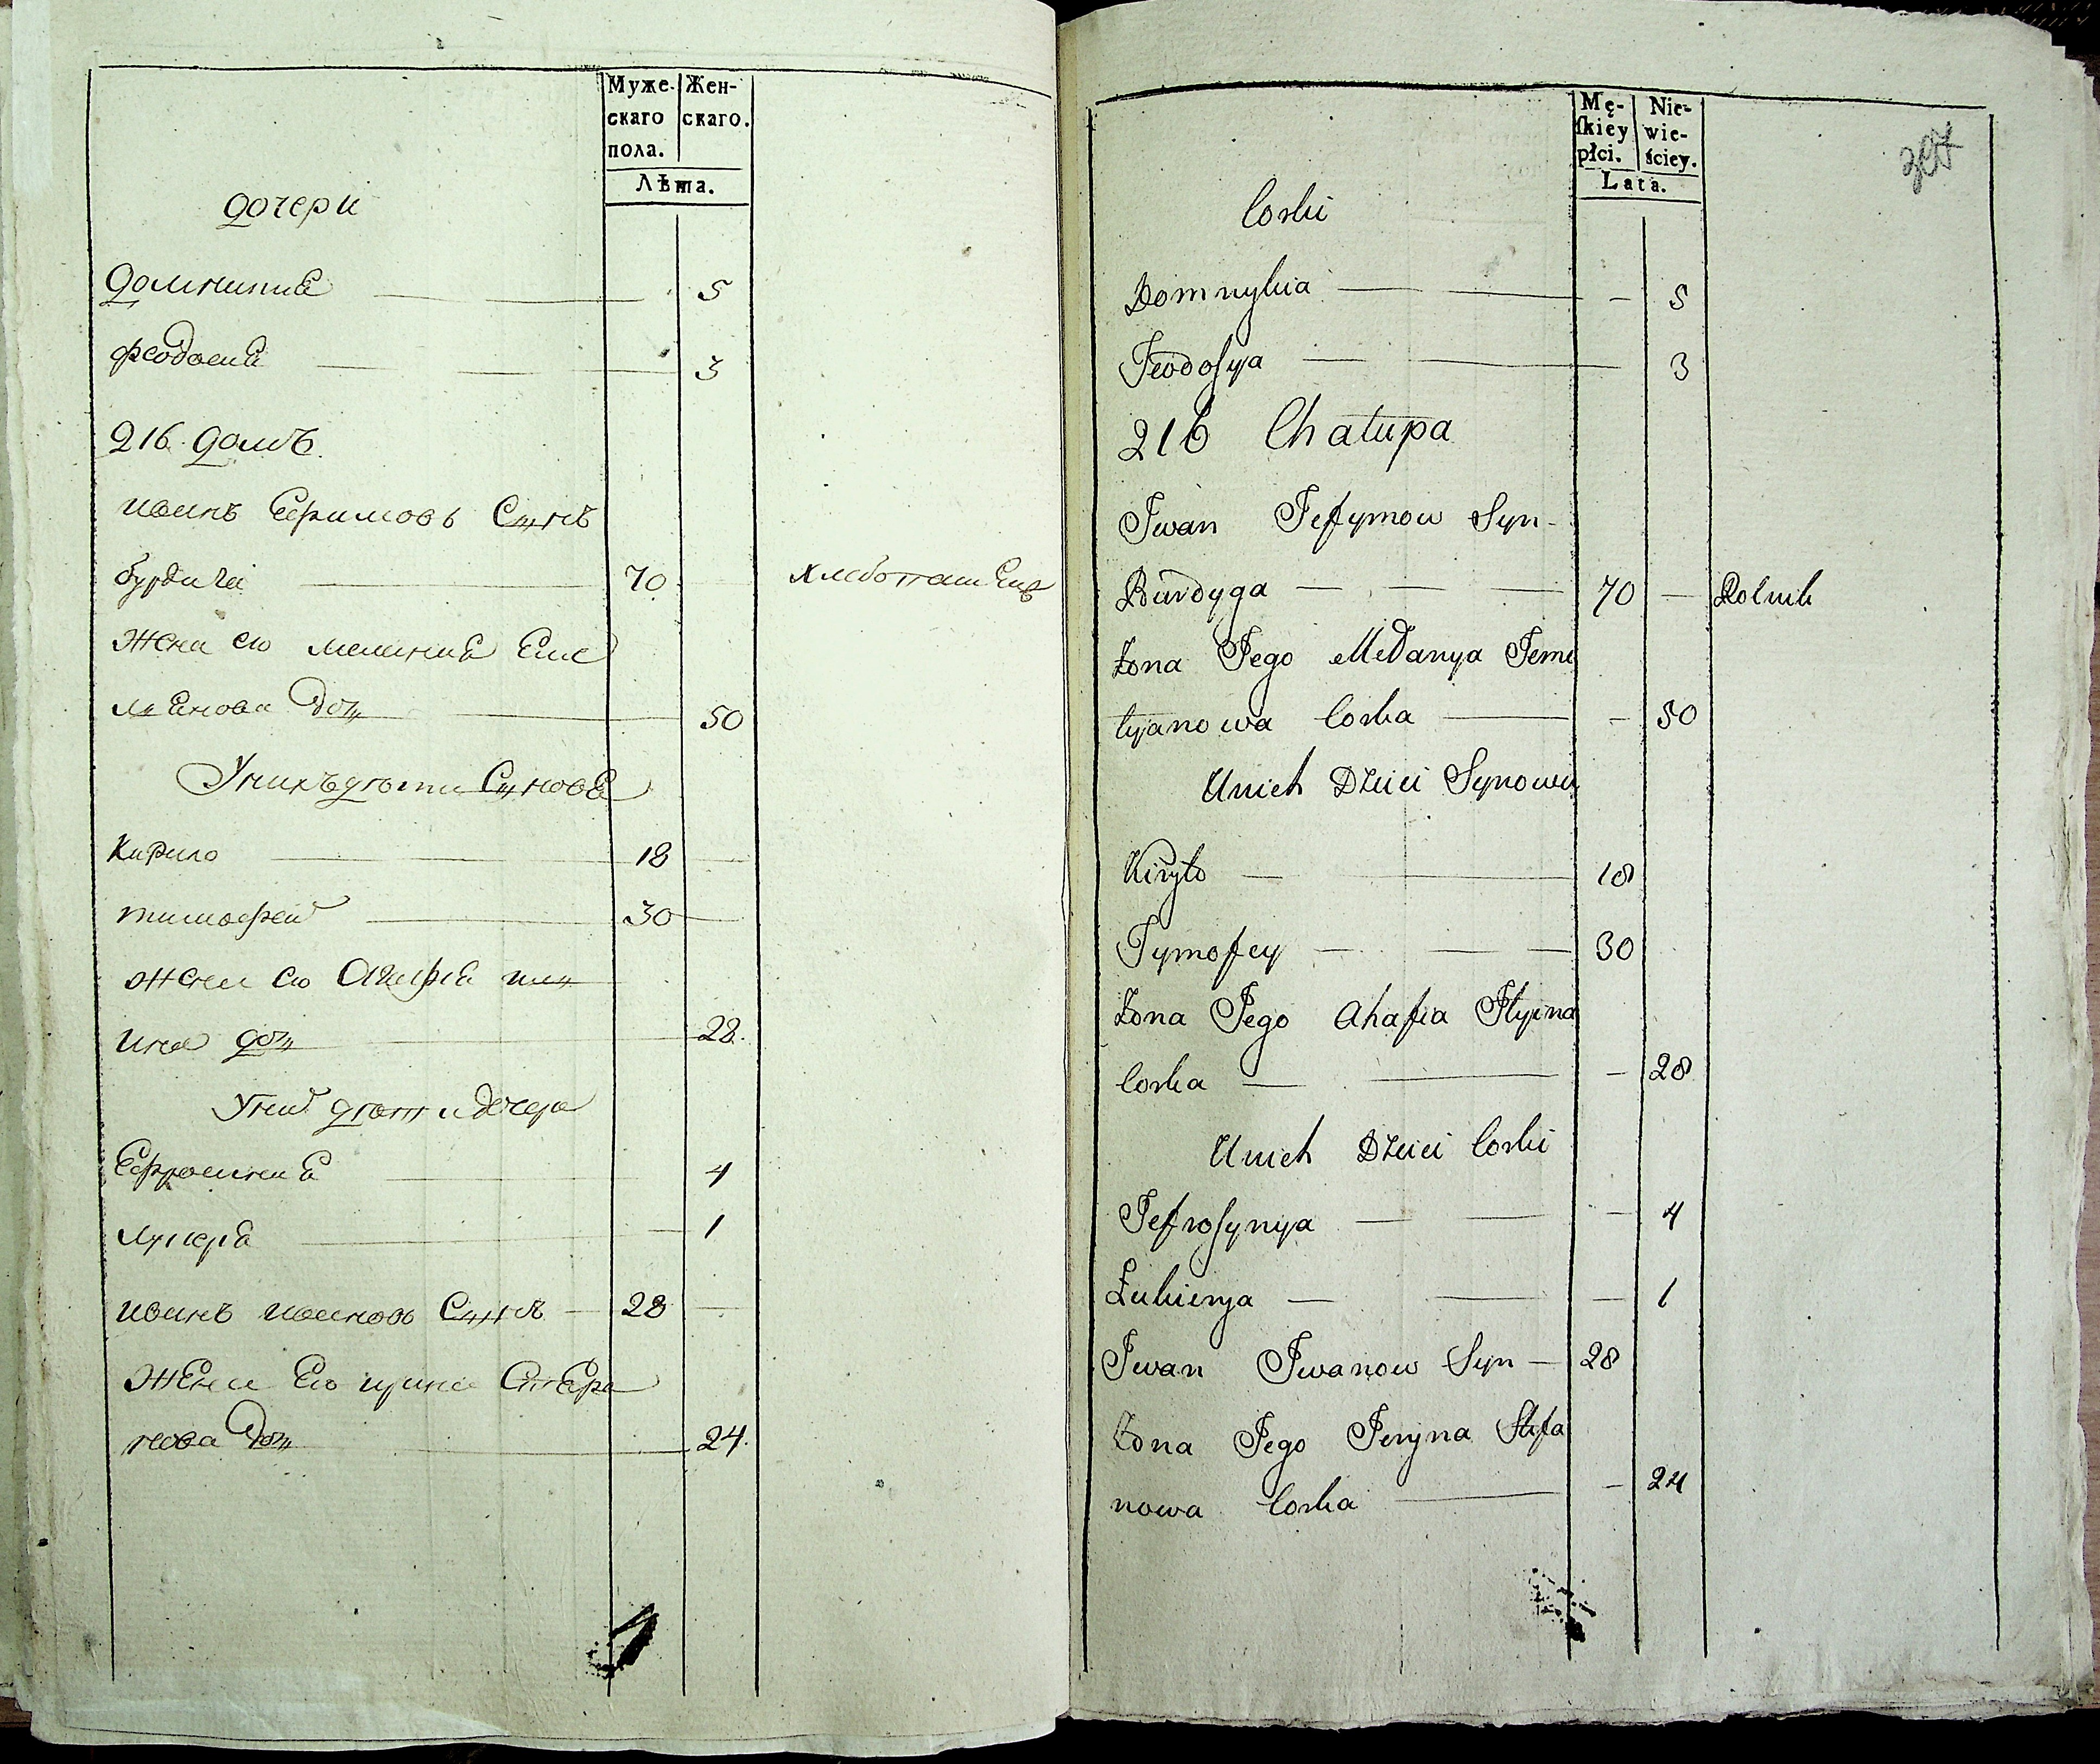 Муже-
скаго
пола.
Жен-
скаго.
Лѣта.
дочери
Домникия 5
феодосия 3
216. домъ.
иванъ Ефимовъ Сынъ
бурдига 70 хлебопашецъ
жена ею мелания Еме
лянова доч 50
Унихъ дѣти Сыновя
Кирило 18
тимофей 30
жена ею Агафия или
ина доч 28.
Уний дѣти дочера
Ефросиния 4
лукеря 1
иванъ ивановъ Сынъ 28
жена Ею ирина Стефа
нова доч 24.
Mę-
skiey
płci.
Nie-
wie-
ściey.
Lata.
307
Corki
Domnykia 5
Feodosya 3
216 Chałupa
Iwan Jefymow Syn
Burdyga 70 Rolnik
Żona Jego Mełanya Jeme
lyanowa Corka 50
U nich Dzieci Synowie
Kiryło 18
Tymofey 30
Żona Jego Ahafia Ilyina
Corka 28
U nich Dzieci Corki
Jefrosynya 4
Łukierya 1
Iwan Iwanow Syn 28
Żona Jego Jeryna Stefa
nowa Corka 24